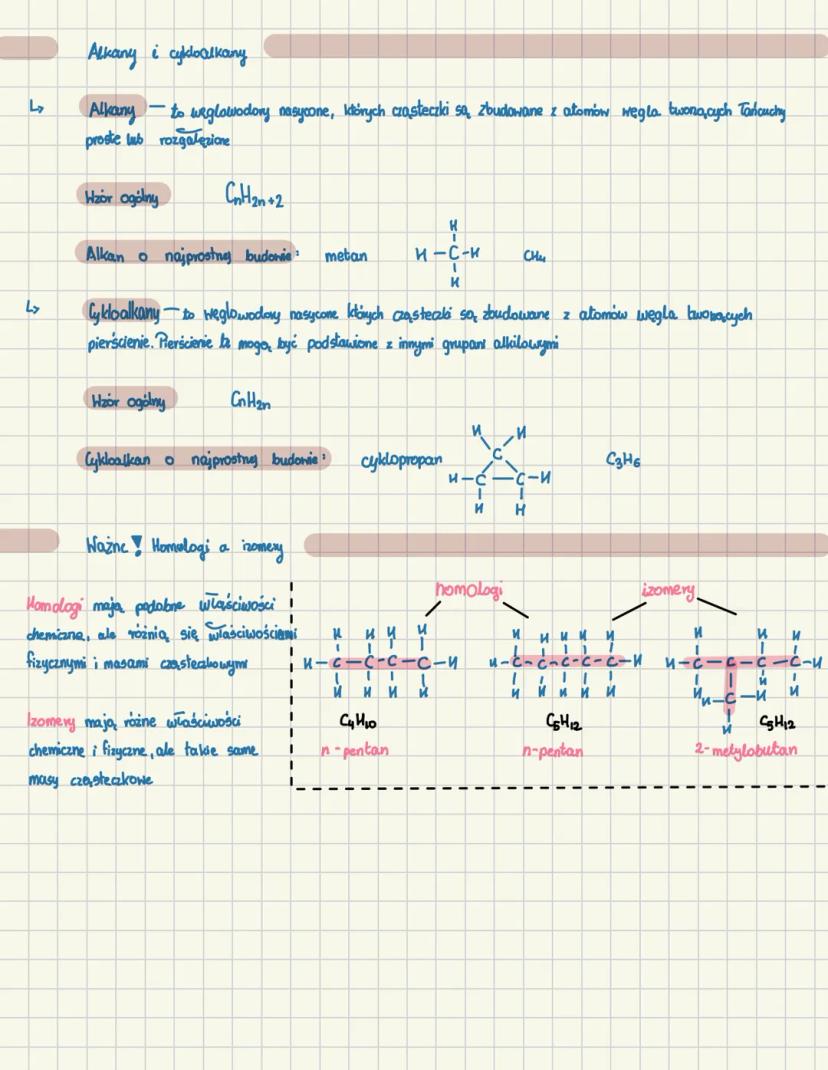 Alkany i cykloalkany
↳ Alkany — to węglowodory nasycone, których cząsteczki są zbudowane z atomów węgla tworzących łańcuchy
proste lub rozgałęzione
Wzór ogólny CnH2n+2
Alkan o najprostrzej budowie: metan CH4
H
H — C - H
H
↳ Cykloalkany — to węglowodory nasycone których cząsteczki są zbudowane z atomów węgla tworzących
pierścienie. Pierścienie te mogą być podstawione z innymi grupami alkilowymi
Wzór ogólny CnH2n
Cykloalkan o najprostrzej budowie: cyklopropan C3H6
H H
C
H — C — C — H
H H
Ważne! Homologi a izomery
Homologi mają podobne właściwości
chemiczne, ale różnią się właściwościami
fizycznymi i masami cząsteczkowymi
Izomery mają różne właściwości
chemiczne i fizyczne, ale takie same
masy cząsteczkowe
homologi izomery
H H H H
H — C — C - C — C — H
H H H H
C4H10
n - pentan
H H H H H
H - C - C - C - C - C - H
H H H H H
C5H12
n-pentan
H H H
H — C — C — C — C - H
H H H
H — C — H
H
C5H12
2-metylobutan